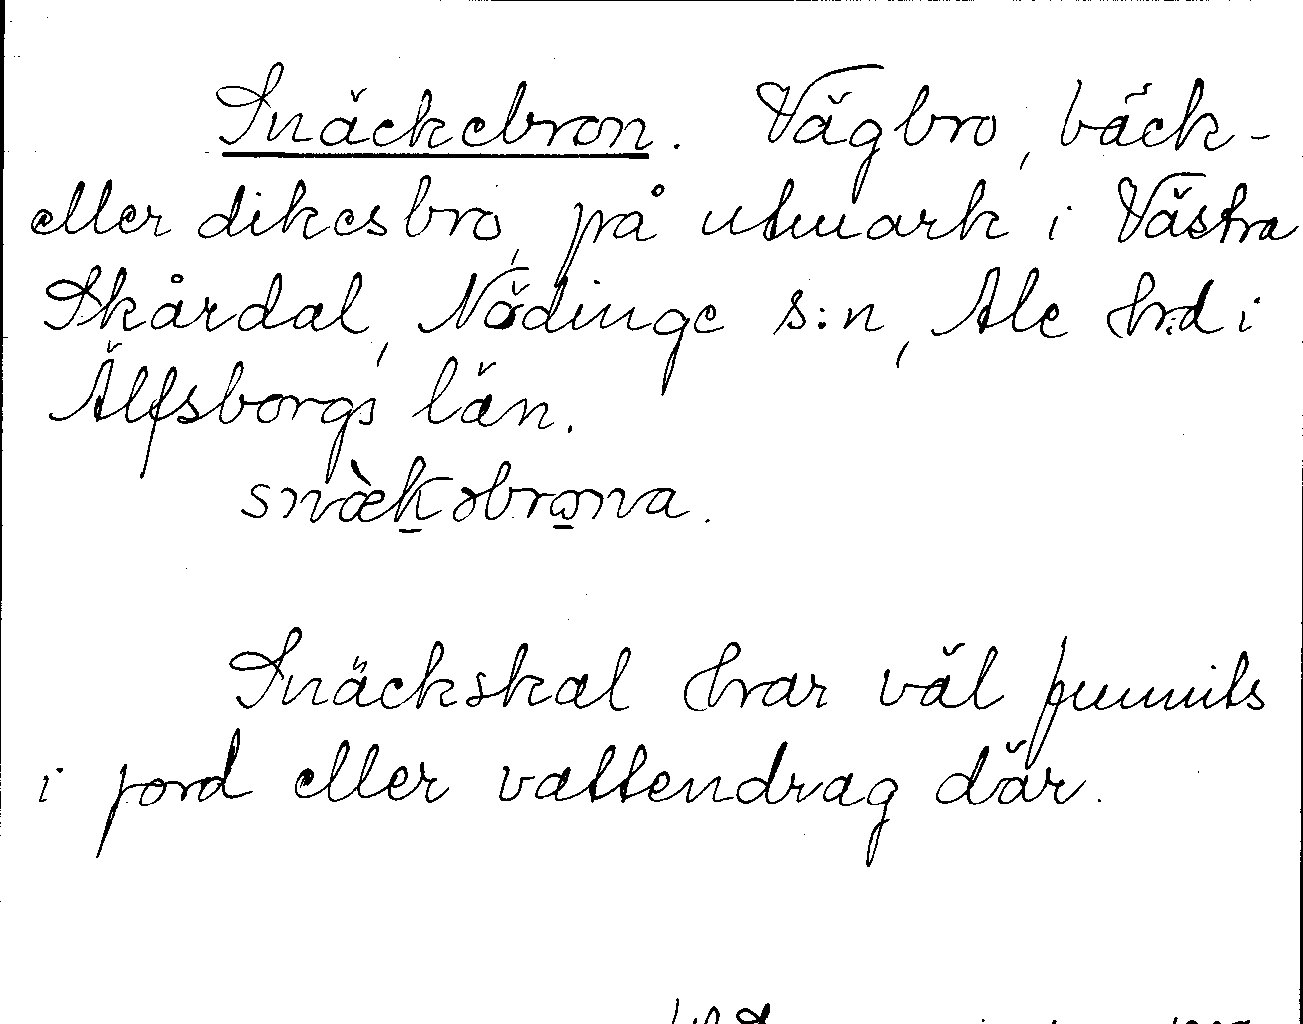 Snäckebron. Vägbro, bäck-
eller dikesbro, på utmark i Västra
Skårdal, Nödinge s:n, Ale hrd i
Älfsborgs län.
snæ̀k̠əbrω̠na.
Snäckskal har väl funnits
i jord eller vattendrag där.